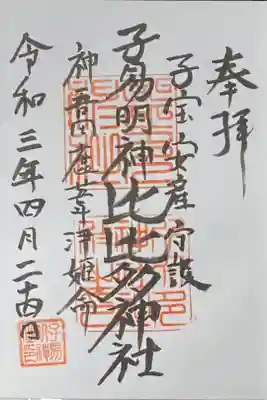 奉拝
子宝安産守護
子易明神比比多神社
神吾田鹿葦津姫命
令和三年四月二十四日